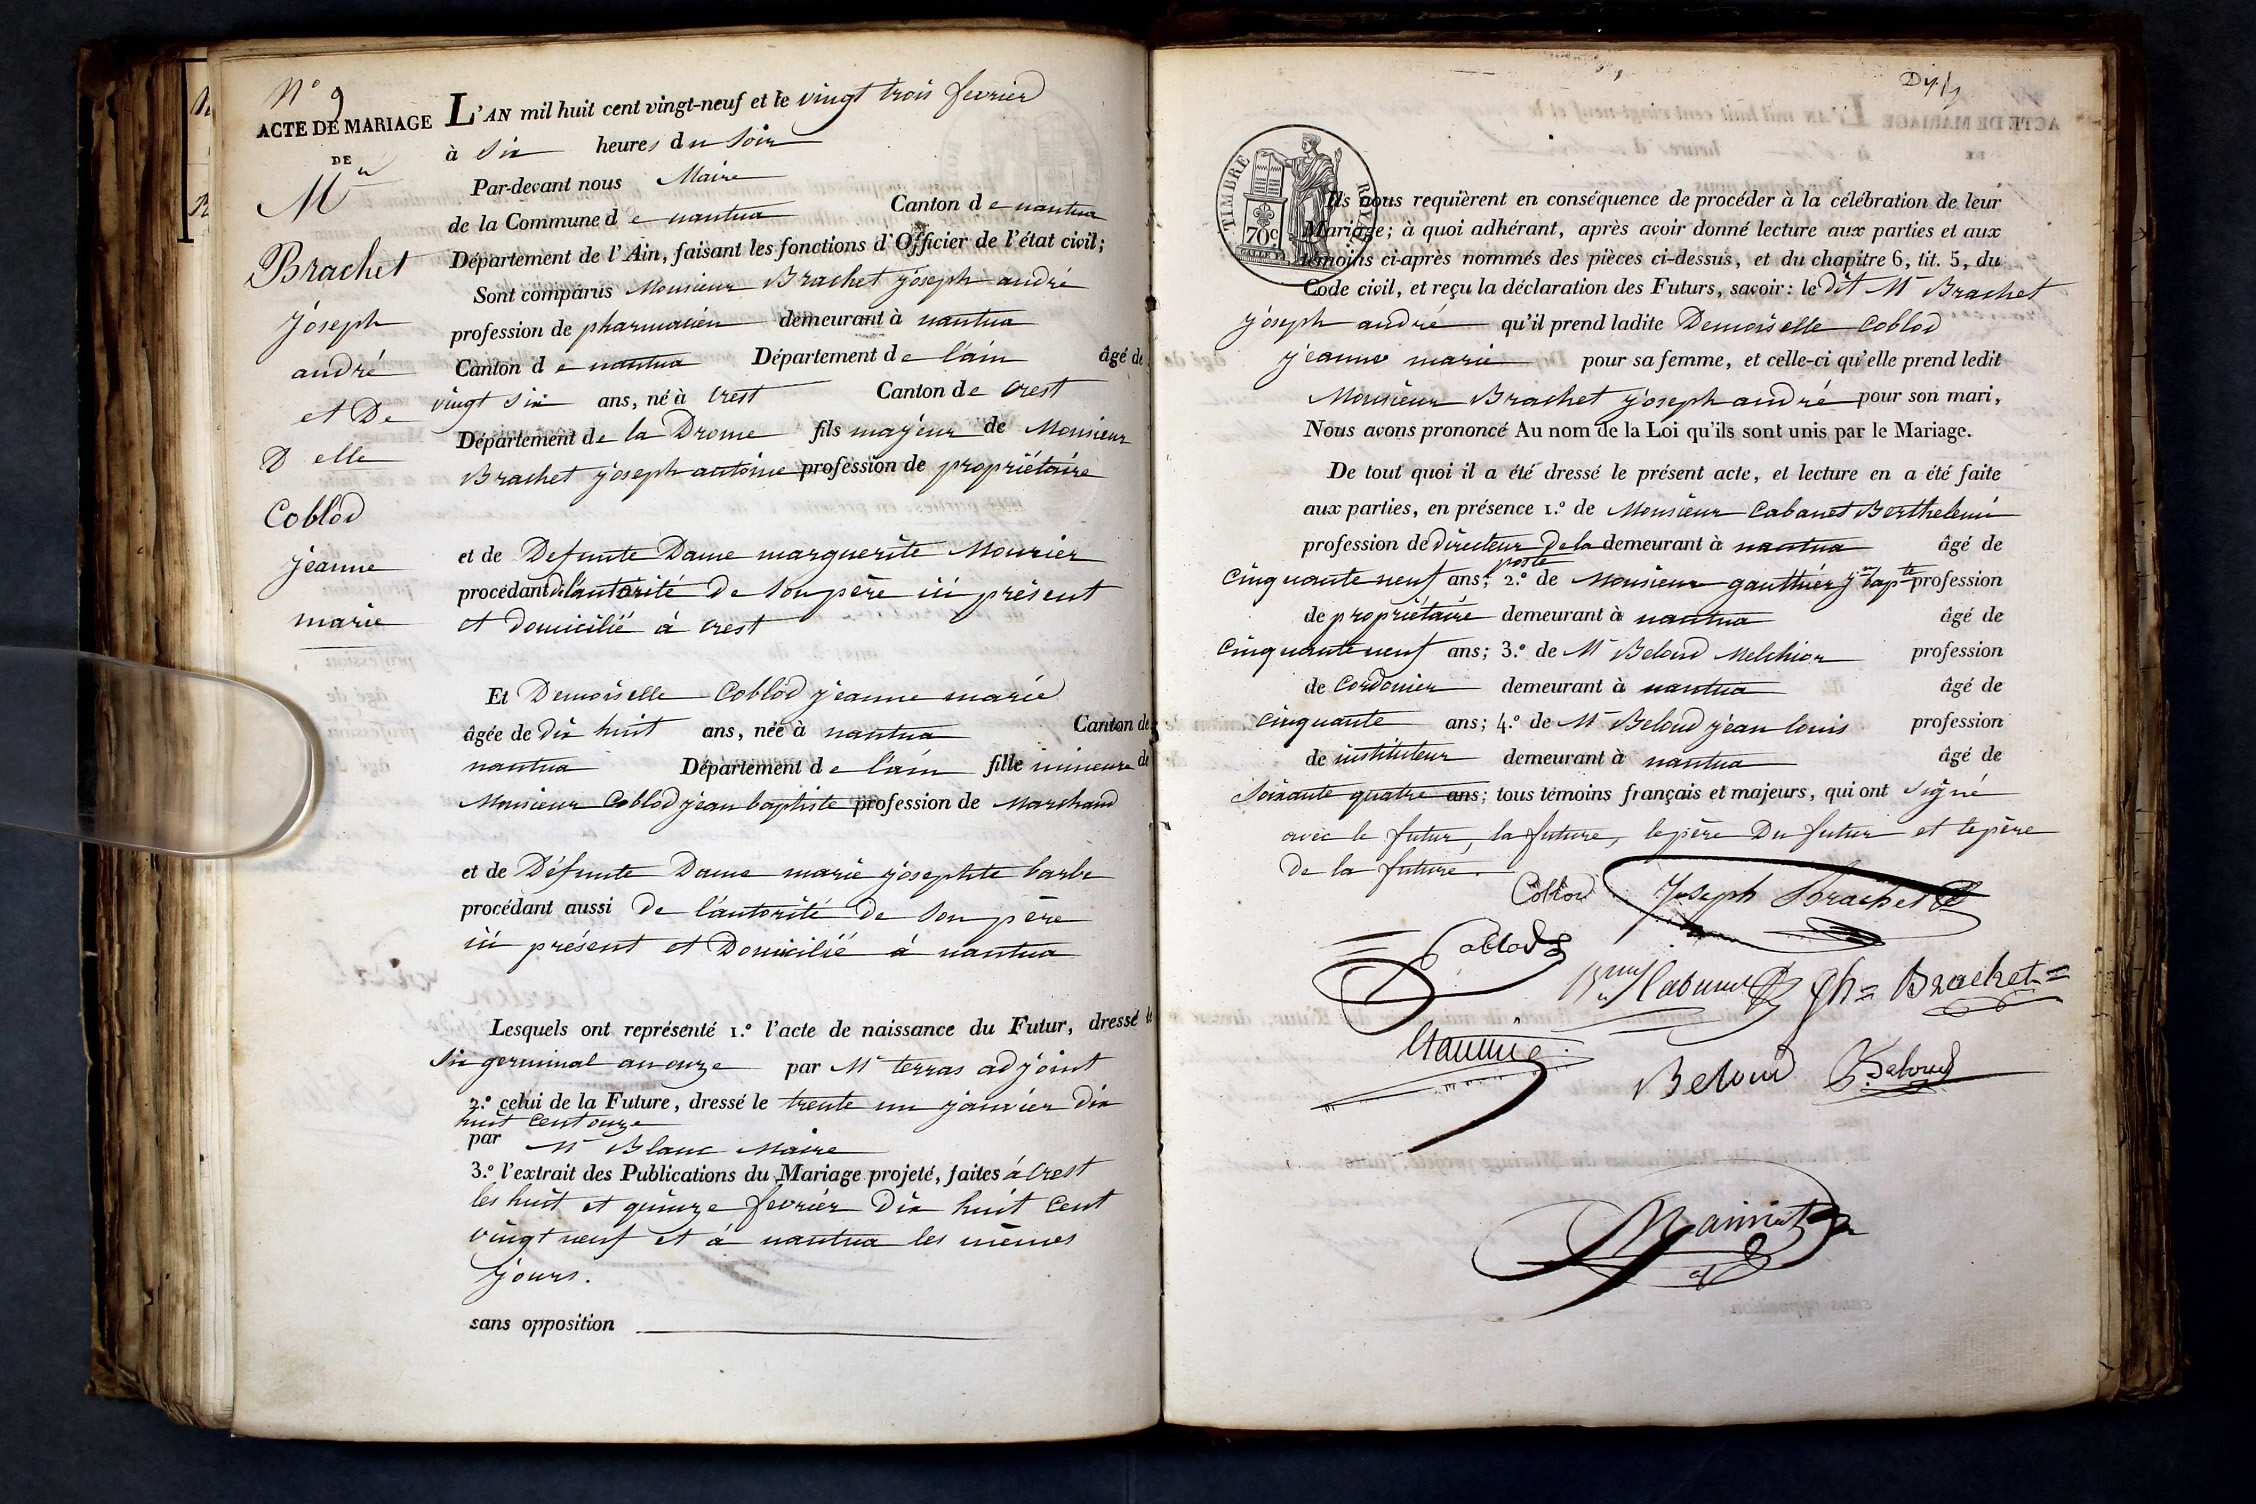 N° 9
ACTE DE MARIAGE
DE
Mr
Brachet
joseph
andré
et De
Delle
Coblod
jeanne
marie
L'AN mil huit cent vingt-neuf et le vingt trois fevrier
à Six heures du Soir
Par-devant nous Maire
de la Commune de nantua Canton de nantua
Département de l'Ain, faisant les fonctions d'Officier de l'état civil;
Sont comparus Monsieur Brachet joseph andré
profession de pharmacien demeurant à nantua
Canton de nantua Département de l'ain âgé de
vingt Six ans, né à Crest Canton de Crest
Département de la Drome fils majeur de Monsieur
Brachet joseph antoine profession de propriétaire
et de Defunte Dame marguerite Mourier
procédant de l'autorité De Son père ici présent
et domicilié à Crest
Et Demoiselle Coblod jeanne marie
âgée de dix huit ans, née à nantua Canton de
nantua Département de l'ain fille mineure de
Monsieur Coblod jean baptiste profession de Marchand
et de Défunte Dame marie josephte barbe
procédant aussi De l'autorité De Son père
ici présent et Domicilié à nantua
Lesquels ont représenté 1.° l'acte de naissance du Futur, dressé le
Six germinal an onze par Mr terras adjoint
2.° celui de la Future, dressé le trente un janvier Dix
huit cent onze
par Mr Blanc Maire
3.° l'extrait des Publications du Mariage projeté, faites à Crest
les huit et quinze fevrier Dix huit Cent
vingt neuf et à nantua les mêmes
jours.
sans opposition
TIMBRE ROYAL
70c
Ils nous requièrent en conséquence de procéder à la célébration de leur
Mariage; à quoi adhérant, après avoir donné lecture aux parties et aux
témoins ci-après nommés des pièces ci-dessus, et du chapitre 6, tit. 5, du
Code civil, et reçu la déclaration des Futurs, savoir: le Dit Mr Brachet
joseph andré qu'il prend ladite Demoiselle Coblod
jeanne marie pour sa femme, et celle-ci qu'elle prend ledit
Monsieur Brachet joseph andré pour son mari,
Nous avons prononcé Au nom de la Loi qu'ils sont unis par le Mariage.
De tout quoi il a été dressé le présent acte, et lecture en a été faite
aux parties, en présence 1.° de Monsieur Cabanet Berthelemi
profession de directeur De la demeurant à nantua âgé de
poste
Cinquante neuf ans; 2.° de Monsieur gauthier jn bapte profession
de propriétaire demeurant à nantua âgé de
Cinquante neuf ans; 3.° de Mr Beloud Melchior profession
de Cordonier demeurant à nantua âgé de
Cinquante ans; 4.° de Mr Beloud jean louis profession
de instituteur demeurant à nantua âgé de
Soixante quatre ans; tous témoins français et majeurs, qui ont Signé
avec le futur, la future, le père Du futur et le père
De la future.
Coblod Joseph Brachet
Coblod
Brachet
Beloud Beloud